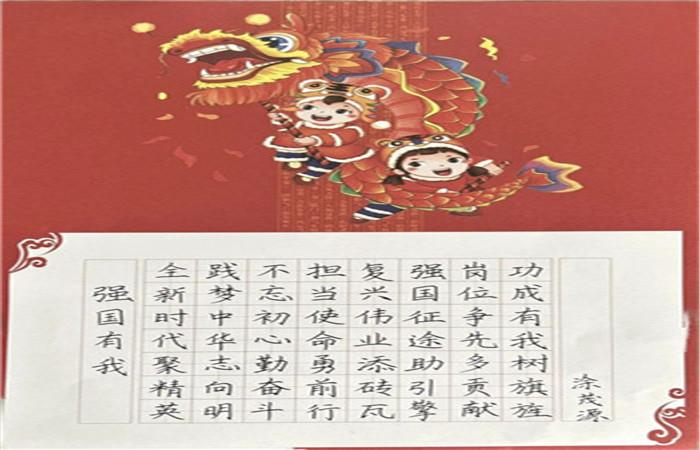 强国有我
全新时代聚精英
践梦中华志向明
不忘初心勤奋斗
担当使命勇前行
复兴伟业添砖瓦
强国征途助引擎
岗位争先多贡献
功成有我树旗旌
涂茂源